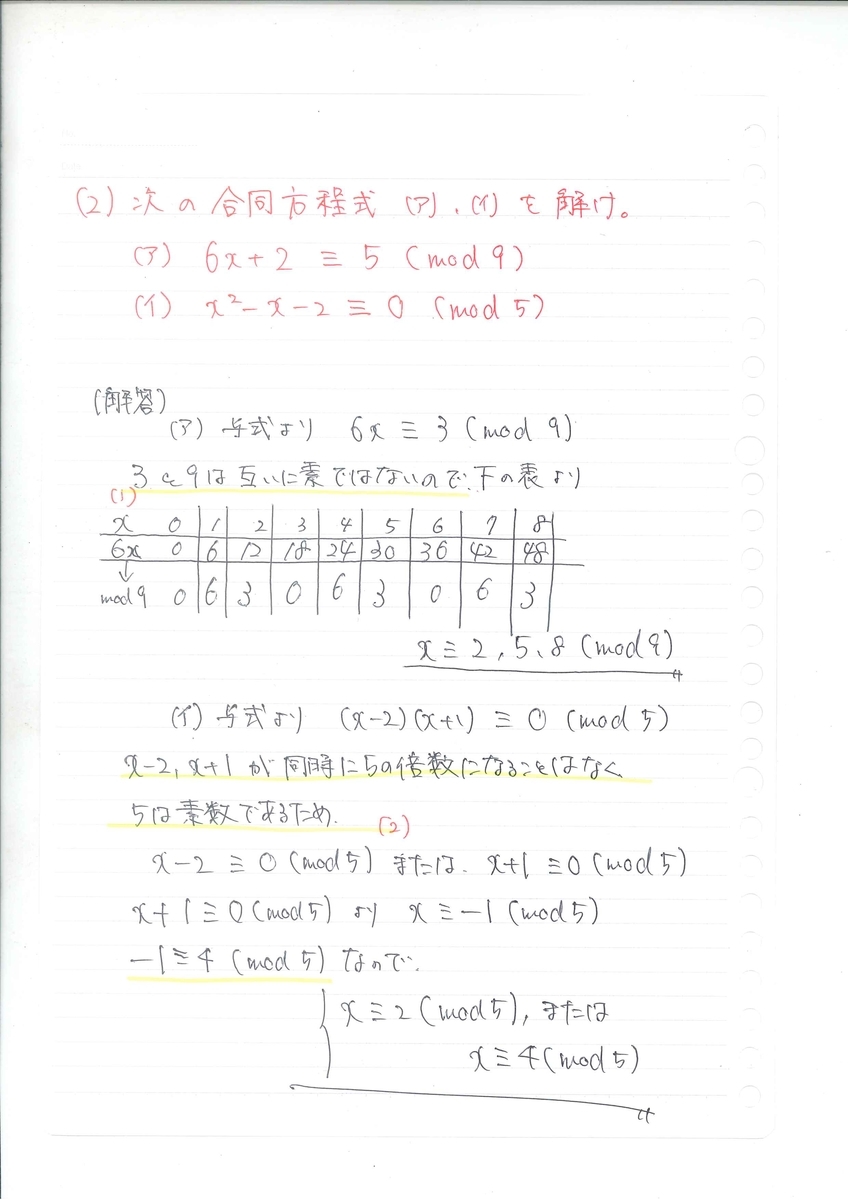 (2) 次の合同方程式 (ア)、(イ)を解け。
(ア) 6x+2 ≡ 5 (mod 9)
(イ) x²-x-2 ≡ 0 (mod 5)
(解答)
(ア) 与式より 6x ≡ 3 (mod 9)
3と9は互いに素ではないので、下の表より
(1)
x 0 1 2 3 4 5 6 7 8
6x 0 6 12 18 24 30 36 42 48
↓
mod 9 0 6 3 0 6 3 0 6 3
x ≡ 2, 5, 8 (mod 9)
(イ) 与式より (x-2)(x+1) ≡ 0 (mod 5)
x-2, x+1 が同時に5の倍数になることはなく、
5は素数であるため、
(2)
x-2 ≡ 0 (mod 5) または、x+1 ≡ 0 (mod 5)
x+1 ≡ 0 (mod 5) より x ≡ -1 (mod 5)
-1 ≡ 4 (mod 5) なので、
x ≡ 2 (mod 5), または
x ≡ 4 (mod 5)